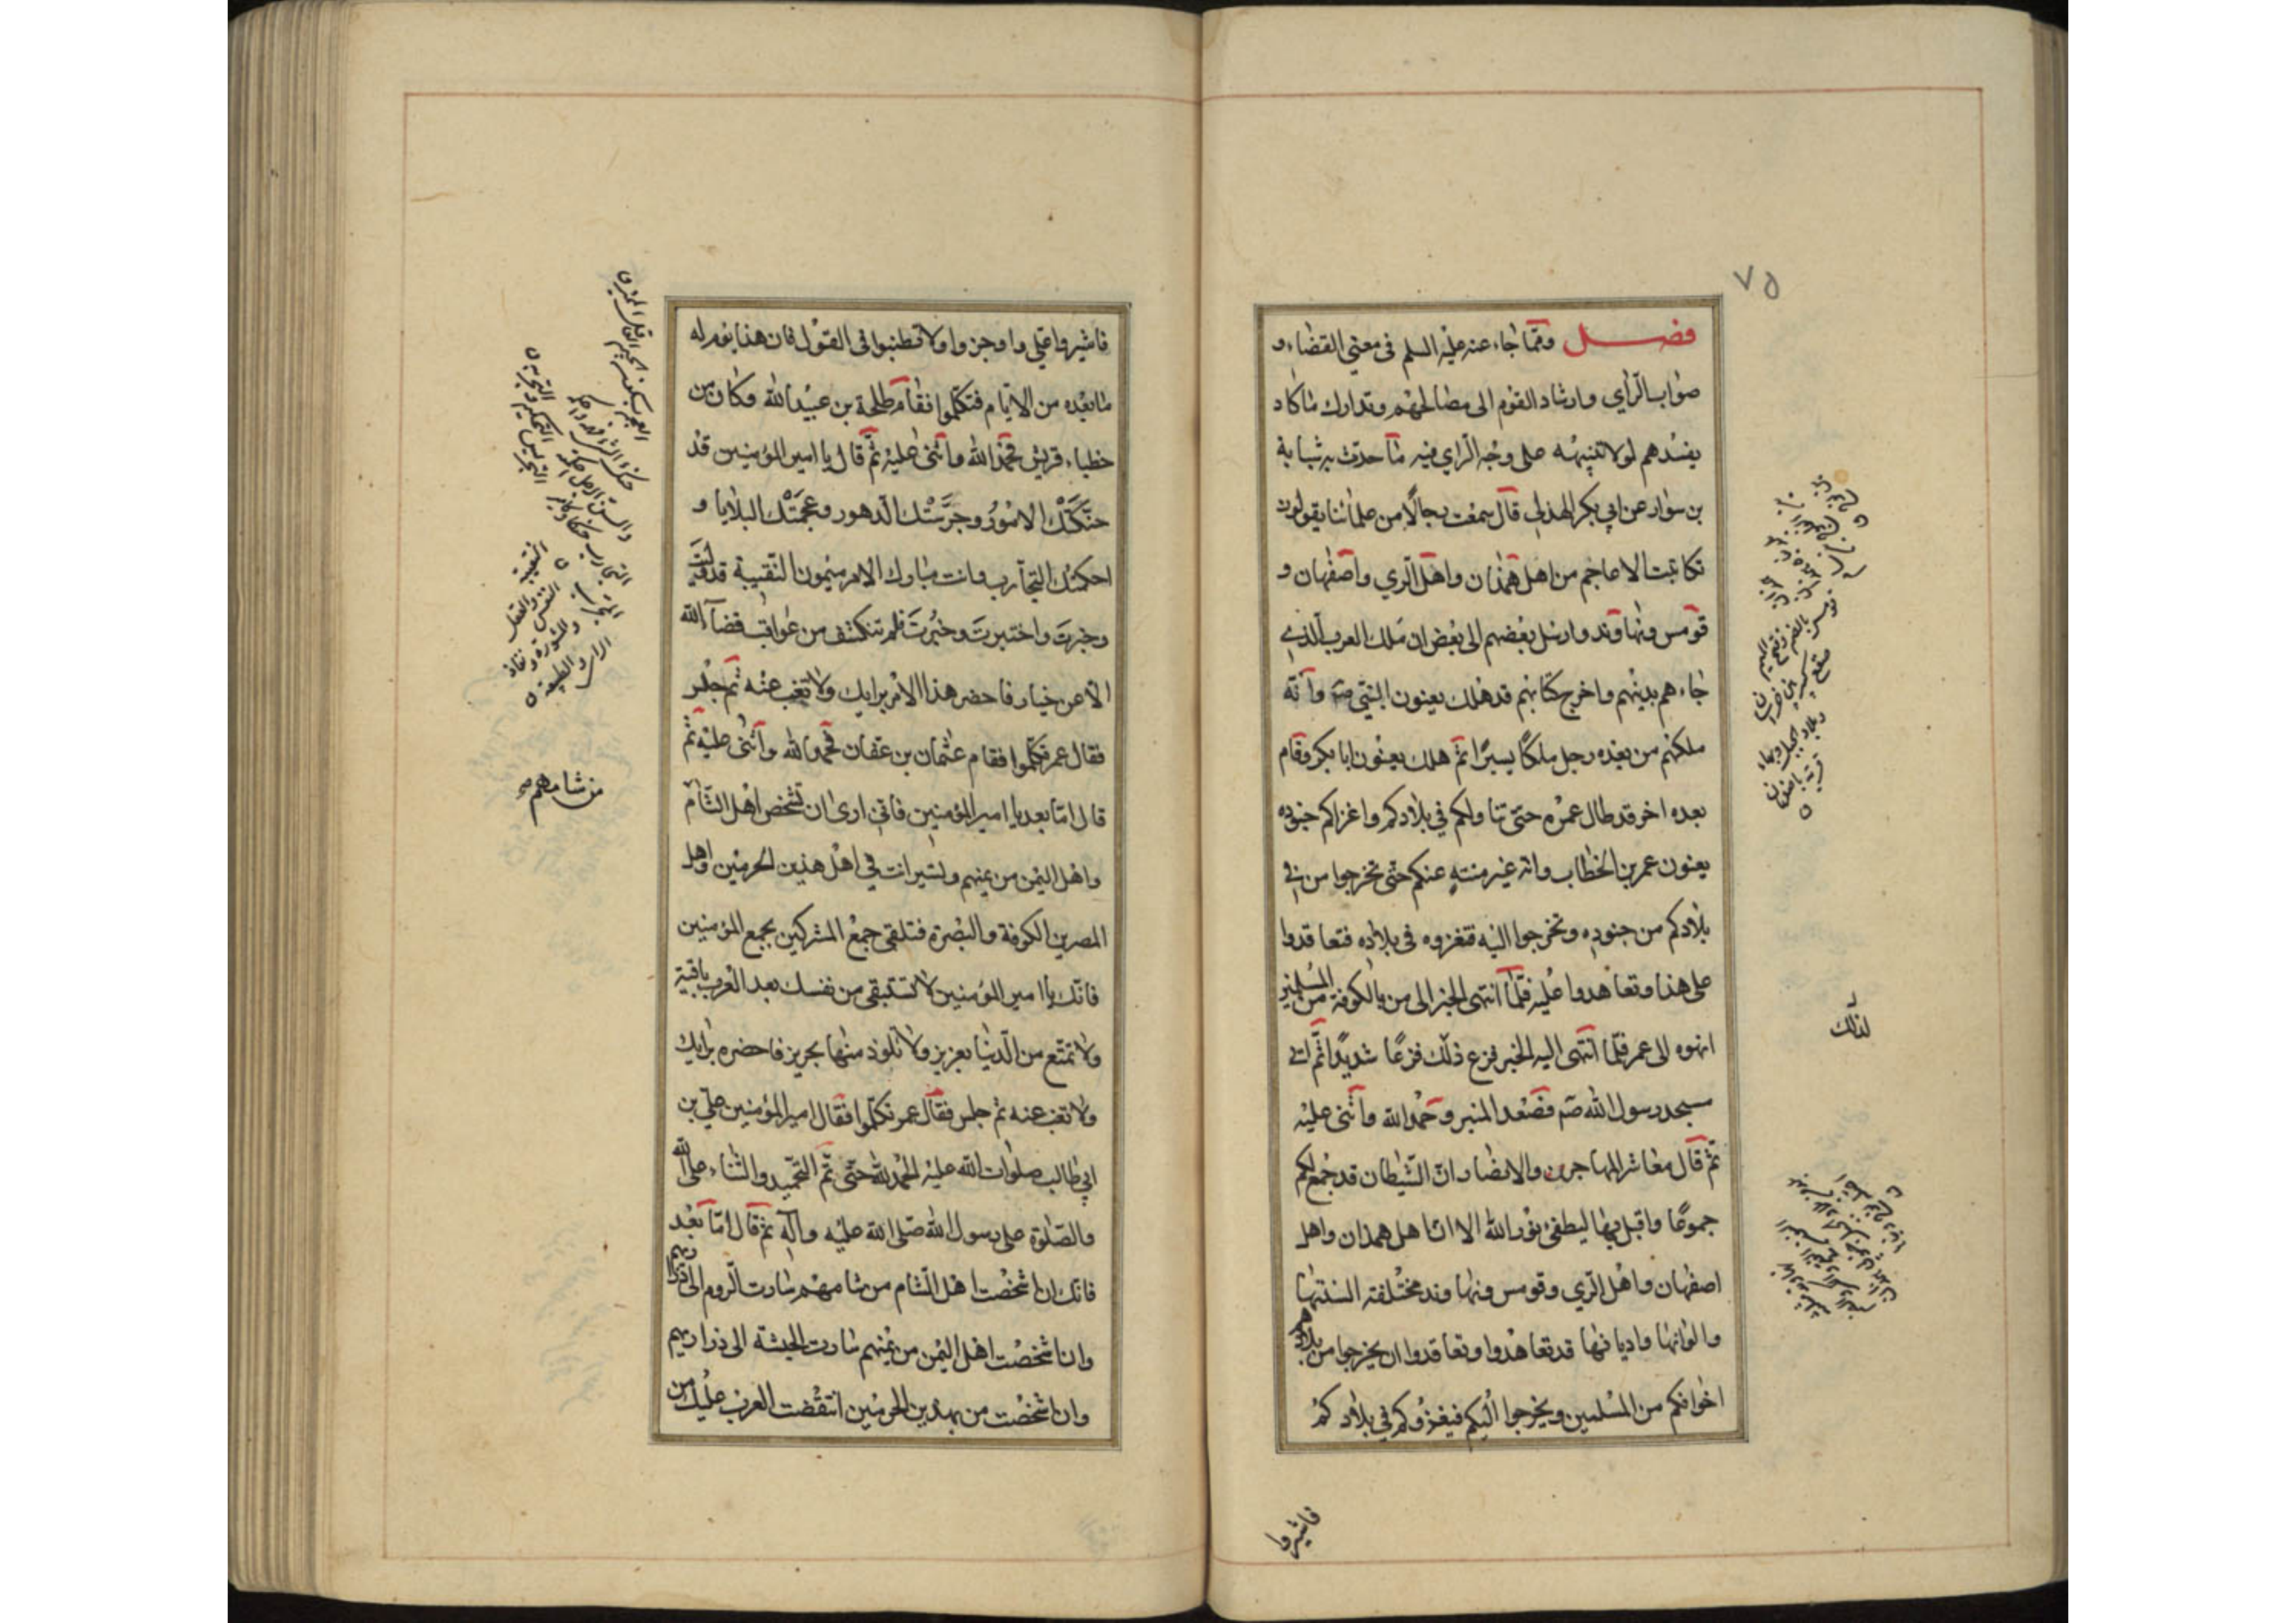 ٧٥
فصل ومما جاء عنه عليه السلم في معنى القضاء و
صواب الراي وارشاد القوم الى مصالحهم وتدارك ما كاد
يفسدهم لولا تنبيهه على وجه الراي فيه ما حدث به شبابة
بن سوار عن ابي بكر الهذلي قال سمعت رجالا من علمائنا يقولون
تكاتبت الاعاجم من اهل همذان واهل الري واصفهان و
قومس ونهاوند وارسل بعضهم الى بعض ان ملك العرب الذي
جاءهم بدينهم واخرج كتابهم قد هلك يعنون النبي صه وانه
ملكهم من بعده رجل ملكا يسيرا ثم هلك يعنون ابا بكر وقام
بعده اخر قد طال عمره حتى تناولكم في بلادكم واغزاكم جنوده
يعنون عمر بن الخطاب وانه غير منته عنكم حتى تخرجوا من في
بلادكم من جنوده وتخرجوا اليه فتغزوه في بلاده فتعاقدوا
على هذا وتعاهدوا عليه فلما انتهى الخبر الى من بالكوفة من المسلمين
انهوه الى عمر فلما انتهى اليه الخبر فزع ذلك فزعا شديدا ثم اتى
مسجد رسول الله صه فصعد المنبر وحمد الله واثنى عليه
ثم قال معاشر المهاجرين والانصار ان الشيطان قد جمع لكم
جموعا واقبل بها ليطفئ نور الله الا ان اهل همدان واهل
اصفهان واهل الري وقومس ونهاوند مختلفة السنتها
والوانها واديانها قد تعاهدوا وتعاقدوا ان يخرجوا من بلادهم
اخوانكم من المسلمين ويخرجوا اليكم فيغزوكم في بلادكم
لذلك
فاشيروا
فاشيروا علي واوجزوا ولا تطنبوا في القول فان هذا يوم له
ما بعده من الايام فتكلموا فقام طلحة بن عبيد الله وكان من
خطباء قريش فحمد الله واثنى عليه ثم قال يا امير المؤمنين قد
حنَّكَتْك الامور وجرَّسَتْك الدهور وعجمَتْك البلايا و
احكمتك التجارب وانت مبارك الامر ميمون النقيبة قد وليت
وخبرت واختبرت وخُبُرتَ فلم تنكشف من عواقب قضاء الله
الا عن خيار فاحضر هذا الامر برايك ولا تغب عنه ثم جلس
فقال عمر تكلموا فقام عثمان بن عفان فحمد الله واثنى عليه ثم
قال اما بعد يا امير المؤمنين فاني ارى ان تشخص اهل الشام
واهل اليمن من يمنهم وتسير انت في اهل هذين الحرمين واهل
المصرين الكوفة والبصرة فتلقى جمع المشركين بجمع المؤمنين
فانك يا امير المؤمنين لا تستبقي من نفسك بعد العرب باقية
ولا تمتع من الدنيا بعزيز ولا تلوذ منها بحريز فاحضره برايك
ولا تغب عنه ثم جلس فقال عمر تكلموا فقال امير المؤمنين علي بن
ابي طالب صلوات الله عليه الحمد لله حتى تم التحميد والثناء على الله
والصلوة على رسول الله صلى الله عليه وآله ثم قال اما بعد
فانك ان اشخصت اهل الشام من شامهم سارت الروم الى ذراريهم
وان اشخصت اهل اليمن من يمنهم سارت الحبشة الى ذراريهم
وان اشخصت من بهذين الحرمين انتقضت العرب عليك من
من شامهم صح